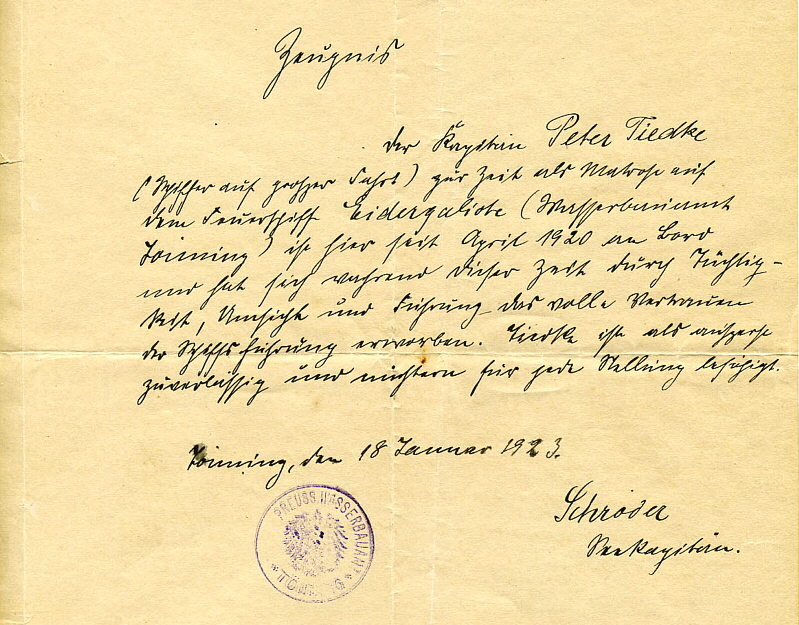 Zeugnis
der Kapitän Peter Tiedke
(Schiffer auf großer Fahrt) zur Zeit als Matrose auf
dem Feuerschiff Eidergaliote (Wasserbauamt
Tönning) ist hier seit April 1920 an Bord
und hat sich während dieser Zeit durch Tüchtig-
keit, Umsicht und Führung das volle Vertrauen
der Schiffsführung erworben. Tiedke ist als äußerst
zuverlässig und nüchtern für jede Stellung befähigt.
Tönning, den 18 Januar 1923.
Schröder
Seekapitän.
PREUSS. WASSERBAUAMT
* TÖNNING *